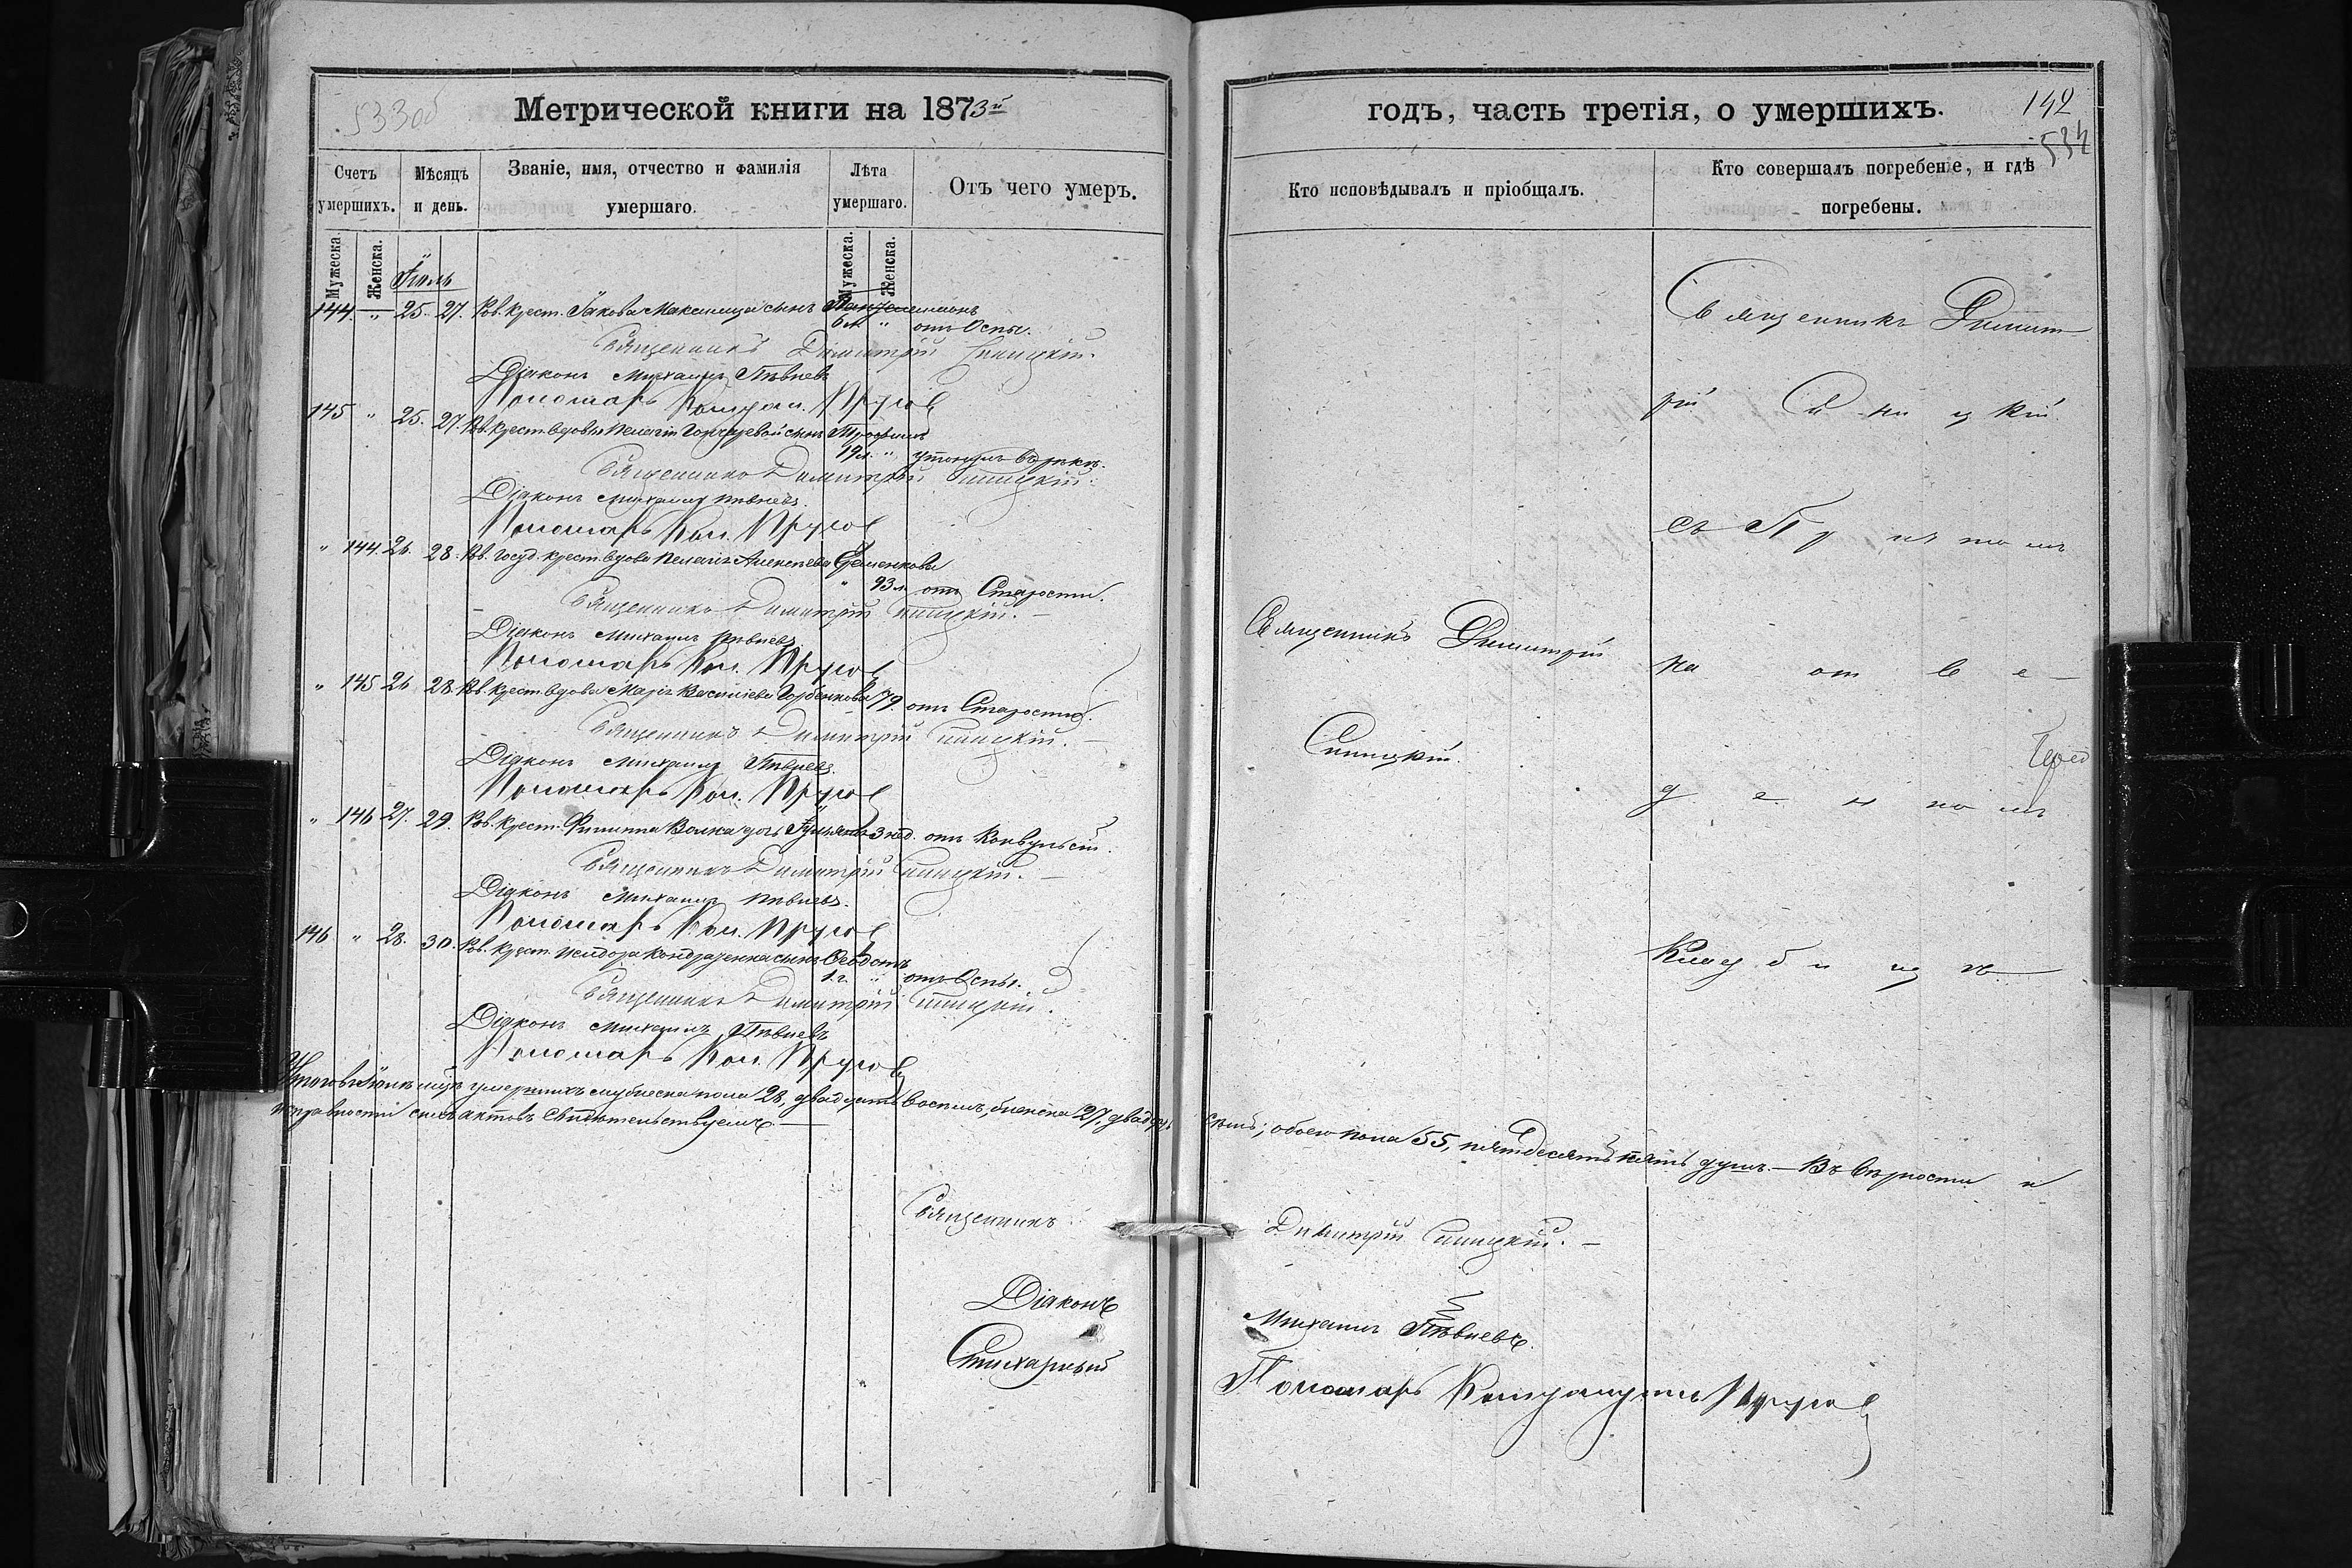 533об
Метрической книги на 1873й
Счетъ умершихъ.
Мѣсяцъ и день.
Званіе, имя, отчество и фамилія умершаго.
Лѣта умершаго.
Отъ чего умеръ.
Мужеска.
Женска.
Мужеска.
Женска.
Іюль
144. " 25. 27. Рв. Крест. Іакова Максимца сынъ Пантелеимонъ
6 м. " отъ Оспы.
Священникъ Димитрій Синицкій.
Діаконъ Михаилъ Пѣвневъ
Пономарь Кондрат. Пругло
145 " 25. 27. Рв. Крест. вдовы Пелагіи Гончаревой сынъ Трофимъ
19 л. " утонулъ въ рѣкѣ.
Священникъ Димитрій Синицкій.
Діаконъ Михаилъ Пѣвневъ.
Пономарь Кон.
" 144. 26. 28. Рв. Госуд. крест. вдова Пелагія Алексѣева Семенкова
" 93 л. отъ Старости.
Священникъ Димитрій Синицкій.
Діаконъ Михаилъ Пѣвневъ
Пономарь Кон.
" 145 26 28. Рв. Крест. вдова Марія Васильева Горбенкова 79. отъ Старости.
Священникъ Димитрій Синицкій.
Діаконъ Михаилъ Пѣвневъ.
Пономарь Кон.
" 146 27. 29. Рв. Крест. Филиппа Волка дочь 3 нед. отъ Конвульсій.
Священникъ Димитрій Синицкій.
Діаконъ Михаилъ Пѣвневъ.
Пономарь Кон.
146 " 28. 30. Рв. Крест. Исидора Кондраценка сынъ Ѳеодотъ
1 г. " отъ Оспы.
Священникъ Димитрій Синицкій.
Діаконъ Михаилъ Пѣвневъ
Пономарь Кон.
Итого въ Іюлѣ м-цѣ умершихъ мужеска пола 28, двадцать восемь, женска 27, двадцать
исправности сихъ актовъ Свидѣтельствуемъ.
Священникъ
Діаконъ
Стихарный
годъ, часть третія, о умершихъ.
142
534
Кто исповѣдывалъ и пріобщалъ.
Кто совершалъ погребеніе, и гдѣ погребены.
Священникъ Димит
рій Синицкій
съ Причтомъ
Священникъ Димитрій
на отве
Синицкій.
денномъ
Кладбищѣ
семь; обоего пола 55, пятьдесятъ пять душъ. — Въ вѣрности и
Димитрій Синицкій. —
Михаилъ Пѣвневъ.
Пономарь